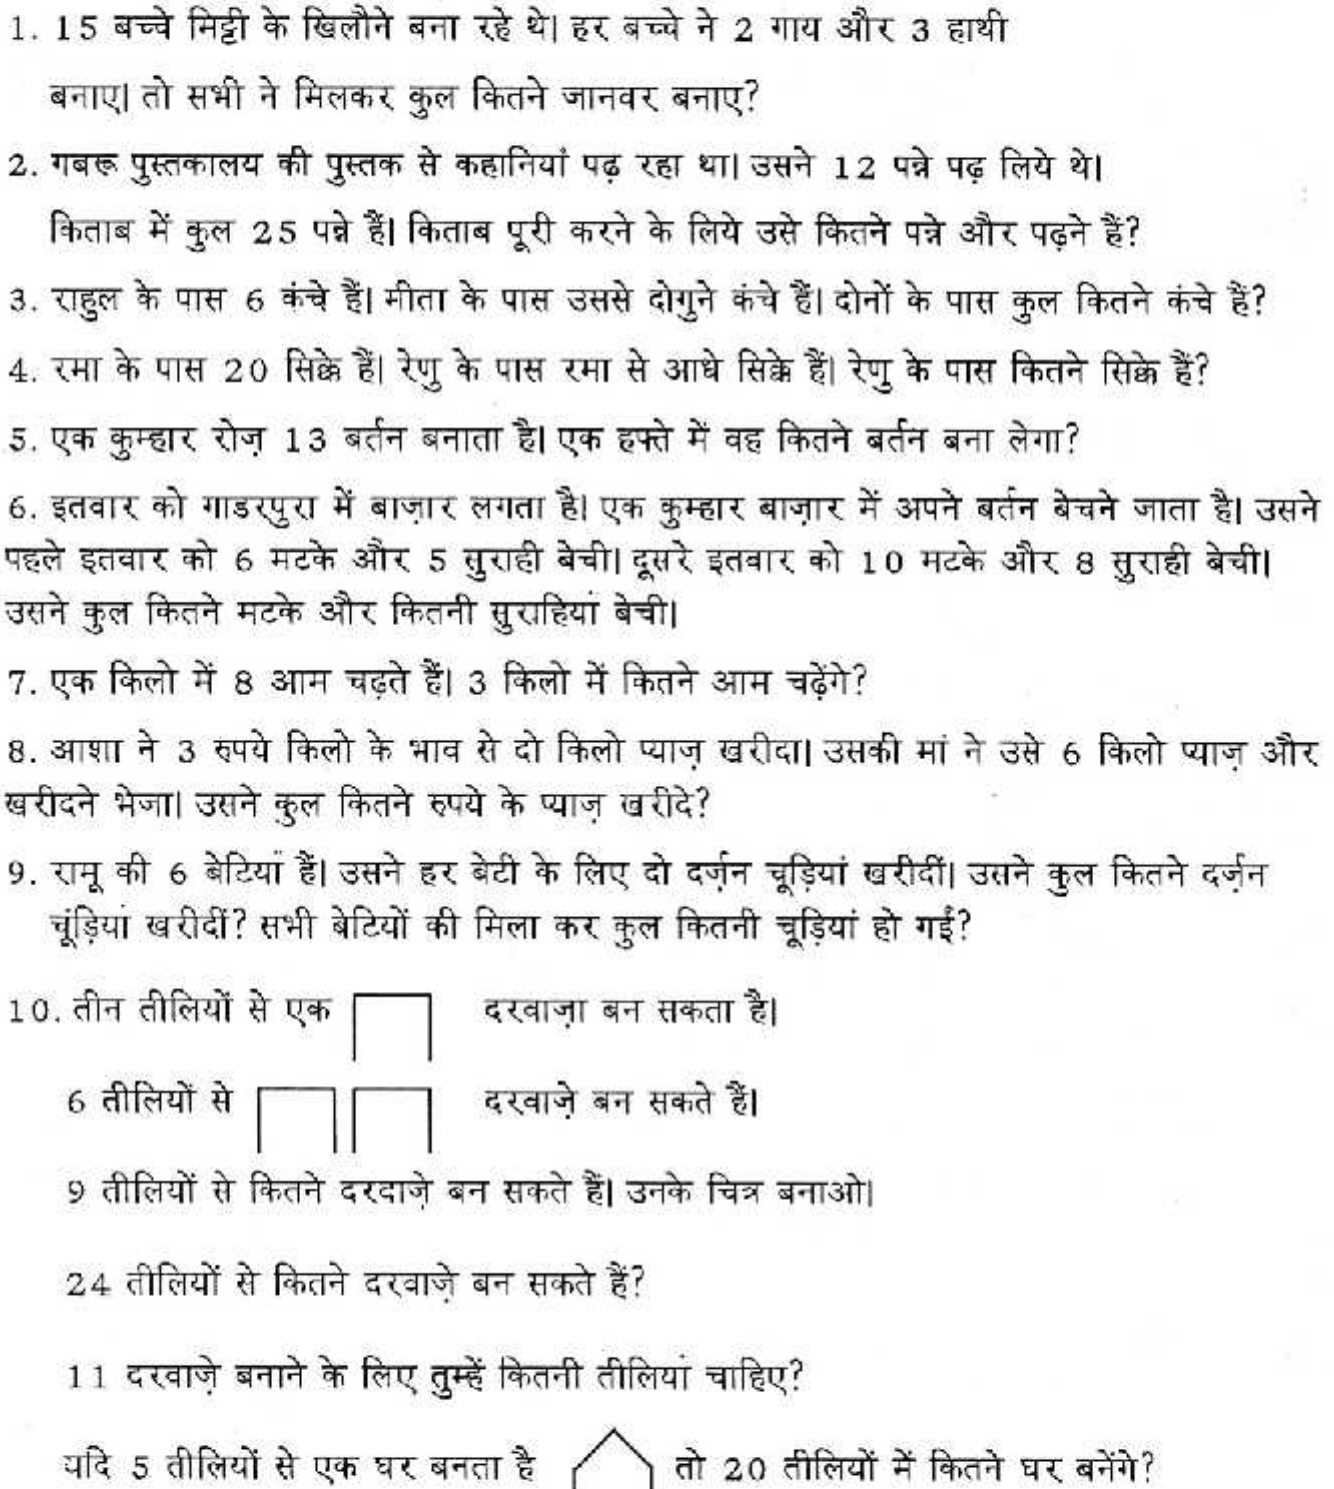 1. 15 बच्चे मिट्टी के खिलौने बना रहे थे| हर बच्चे ने 2 गाय और 3 हाथी
बनाए| तो सभी ने मिलकर कुल कितने जानवर बनाए?
2. गबरू पुस्तकालय की पुस्तक से कहानियां पढ़ रहा था| उसने 12 पन्ने पढ़ लिये थे|
किताब में कुल 25 पन्ने हैं| किताब पूरी करने के लिये उसे कितने पन्ने और पढ़ने हैं?
3. राहुल के पास 6 कंचे हैं| मीता के पास उससे दोगुने कंचे हैं| दोनों के पास कुल कितने कंचे हैं?
4. रमा के पास 20 सिक्के हैं| रेणु के पास रमा से आधे सिक्के हैं| रेणु के पास कितने सिक्के हैं?
5. एक कुम्हार रोज़ 13 बर्तन बनाता है| एक हफ्ते में वह कितने बर्तन बना लेगा?
6. इतवार को गाडरपुरा में बाज़ार लगता है| एक कुम्हार बाज़ार में अपने बर्तन बेचने जाता है| उसने
पहले इतवार को 6 मटके और 5 सुराही बेची| दूसरे इतवार को 10 मटके और 8 सुराही बेची|
उसने कुल कितने मटके और कितनी सुराहियां बेची|
7. एक किलो में 8 आम चढ़ते हैं| 3 किलो में कितने आम चढ़ेंगे?
8. आशा ने 3 रुपये किलो के भाव से दो किलो प्याज़ खरीदा| उसकी मां ने उसे 6 किलो प्याज़ और
खरीदने भेजा| उसने कुल कितने रुपये के प्याज़ खरीदे?
9. रामू की 6 बेटियां हैं| उसने हर बेटी के लिए दो दर्ज़न चूड़ियां खरीदीं| उसने कुल कितने दर्ज़न
चूंड़ियां खरीदीं? सभी बेटियों की मिला कर कुल कितनी चूड़ियां हो गईं?
10. तीन तीलियों से एक दरवाज़ा बन सकता है|
6 तीलियों से दरवाज़े बन सकते हैं|
9 तीलियों से कितने दरदाज़े बन सकते हैं| उनके चित्र बनाओ|
24 तीलियों से कितने दरवाज़े बन सकते हैं?
11 दरवाज़े बनाने के लिए तुम्हें कितनी तीलियां चाहिए?
यदि 5 तीलियों से एक घर बनता है तो 20 तीलियों में कितने घर बनेंगे?